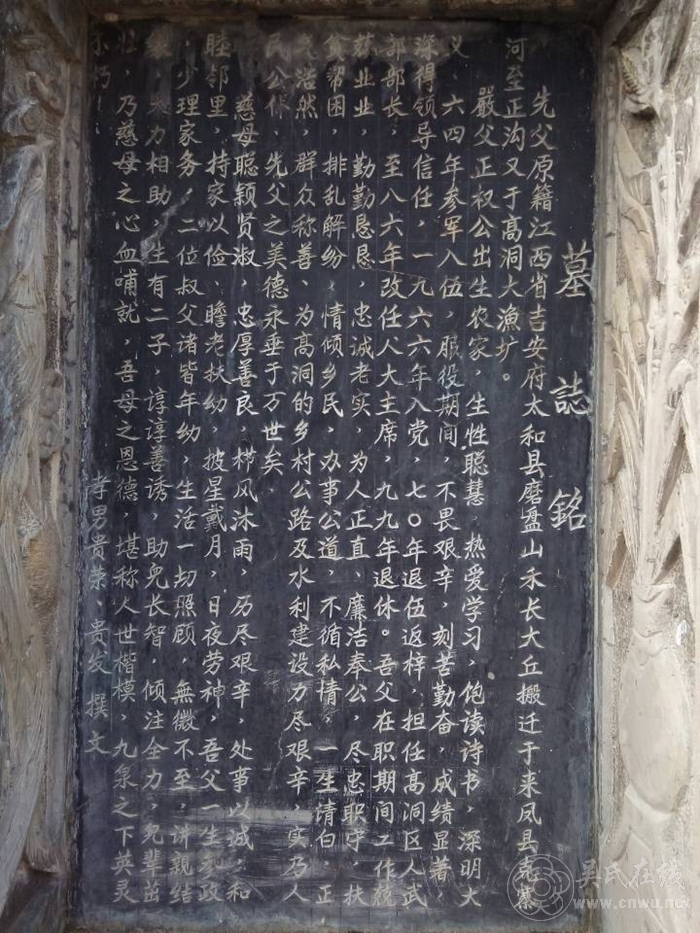 墓誌銘
先父原籍江西省吉安府太和县磨盘山禾长大丘搬迁于来凤县克寨
河至正沟又于高洞大渔圹。
嚴父正权公出生农家，生性聪慧，热爱学习，饱读诗书，深明大
义，六四年参军入伍，服役期间，不畏艰辛，刻苦勤奋，成绩显著，
深得领导信任，一九六六年入党，七〇年退伍返梓，担任高洞区人武
部部长，至八六年改任人大主席，九九年退休。吾父在职期间工作兢
兢业业，勤勤恳恳，忠诚老实，为人正直、廉洁奉公，尽忠职守，扶
贫帮困，排乱解纷，情倾乡民，办事公道，不循私情，一生清白，正
气浩然，群众称善、为高洞的乡村公路及水利建设力尽艰辛，实乃人
民公仆，先父之美德永垂于万世矣，
慈母聪颖贤淑，忠厚善良，栉风沐雨，历尽艰辛，处事以诚，和
睦邻里，持家以俭、瞻老扶幼，披星戴月，日夜劳神，吾父一生参政
，少理家务，二位叔父诸皆年幼，生活一切照顾，無微不至，讲親结
，大力相助，生有二子，谆谆善诱，助兒长智，倾注全力，兒辈茁
壮，乃慈母之心血哺就，吾母之恩德，堪称人世楷模，九泉之下英灵
不朽！
孝男贵荣、贵发 撰文
吴氏在线
www.cnwu.net